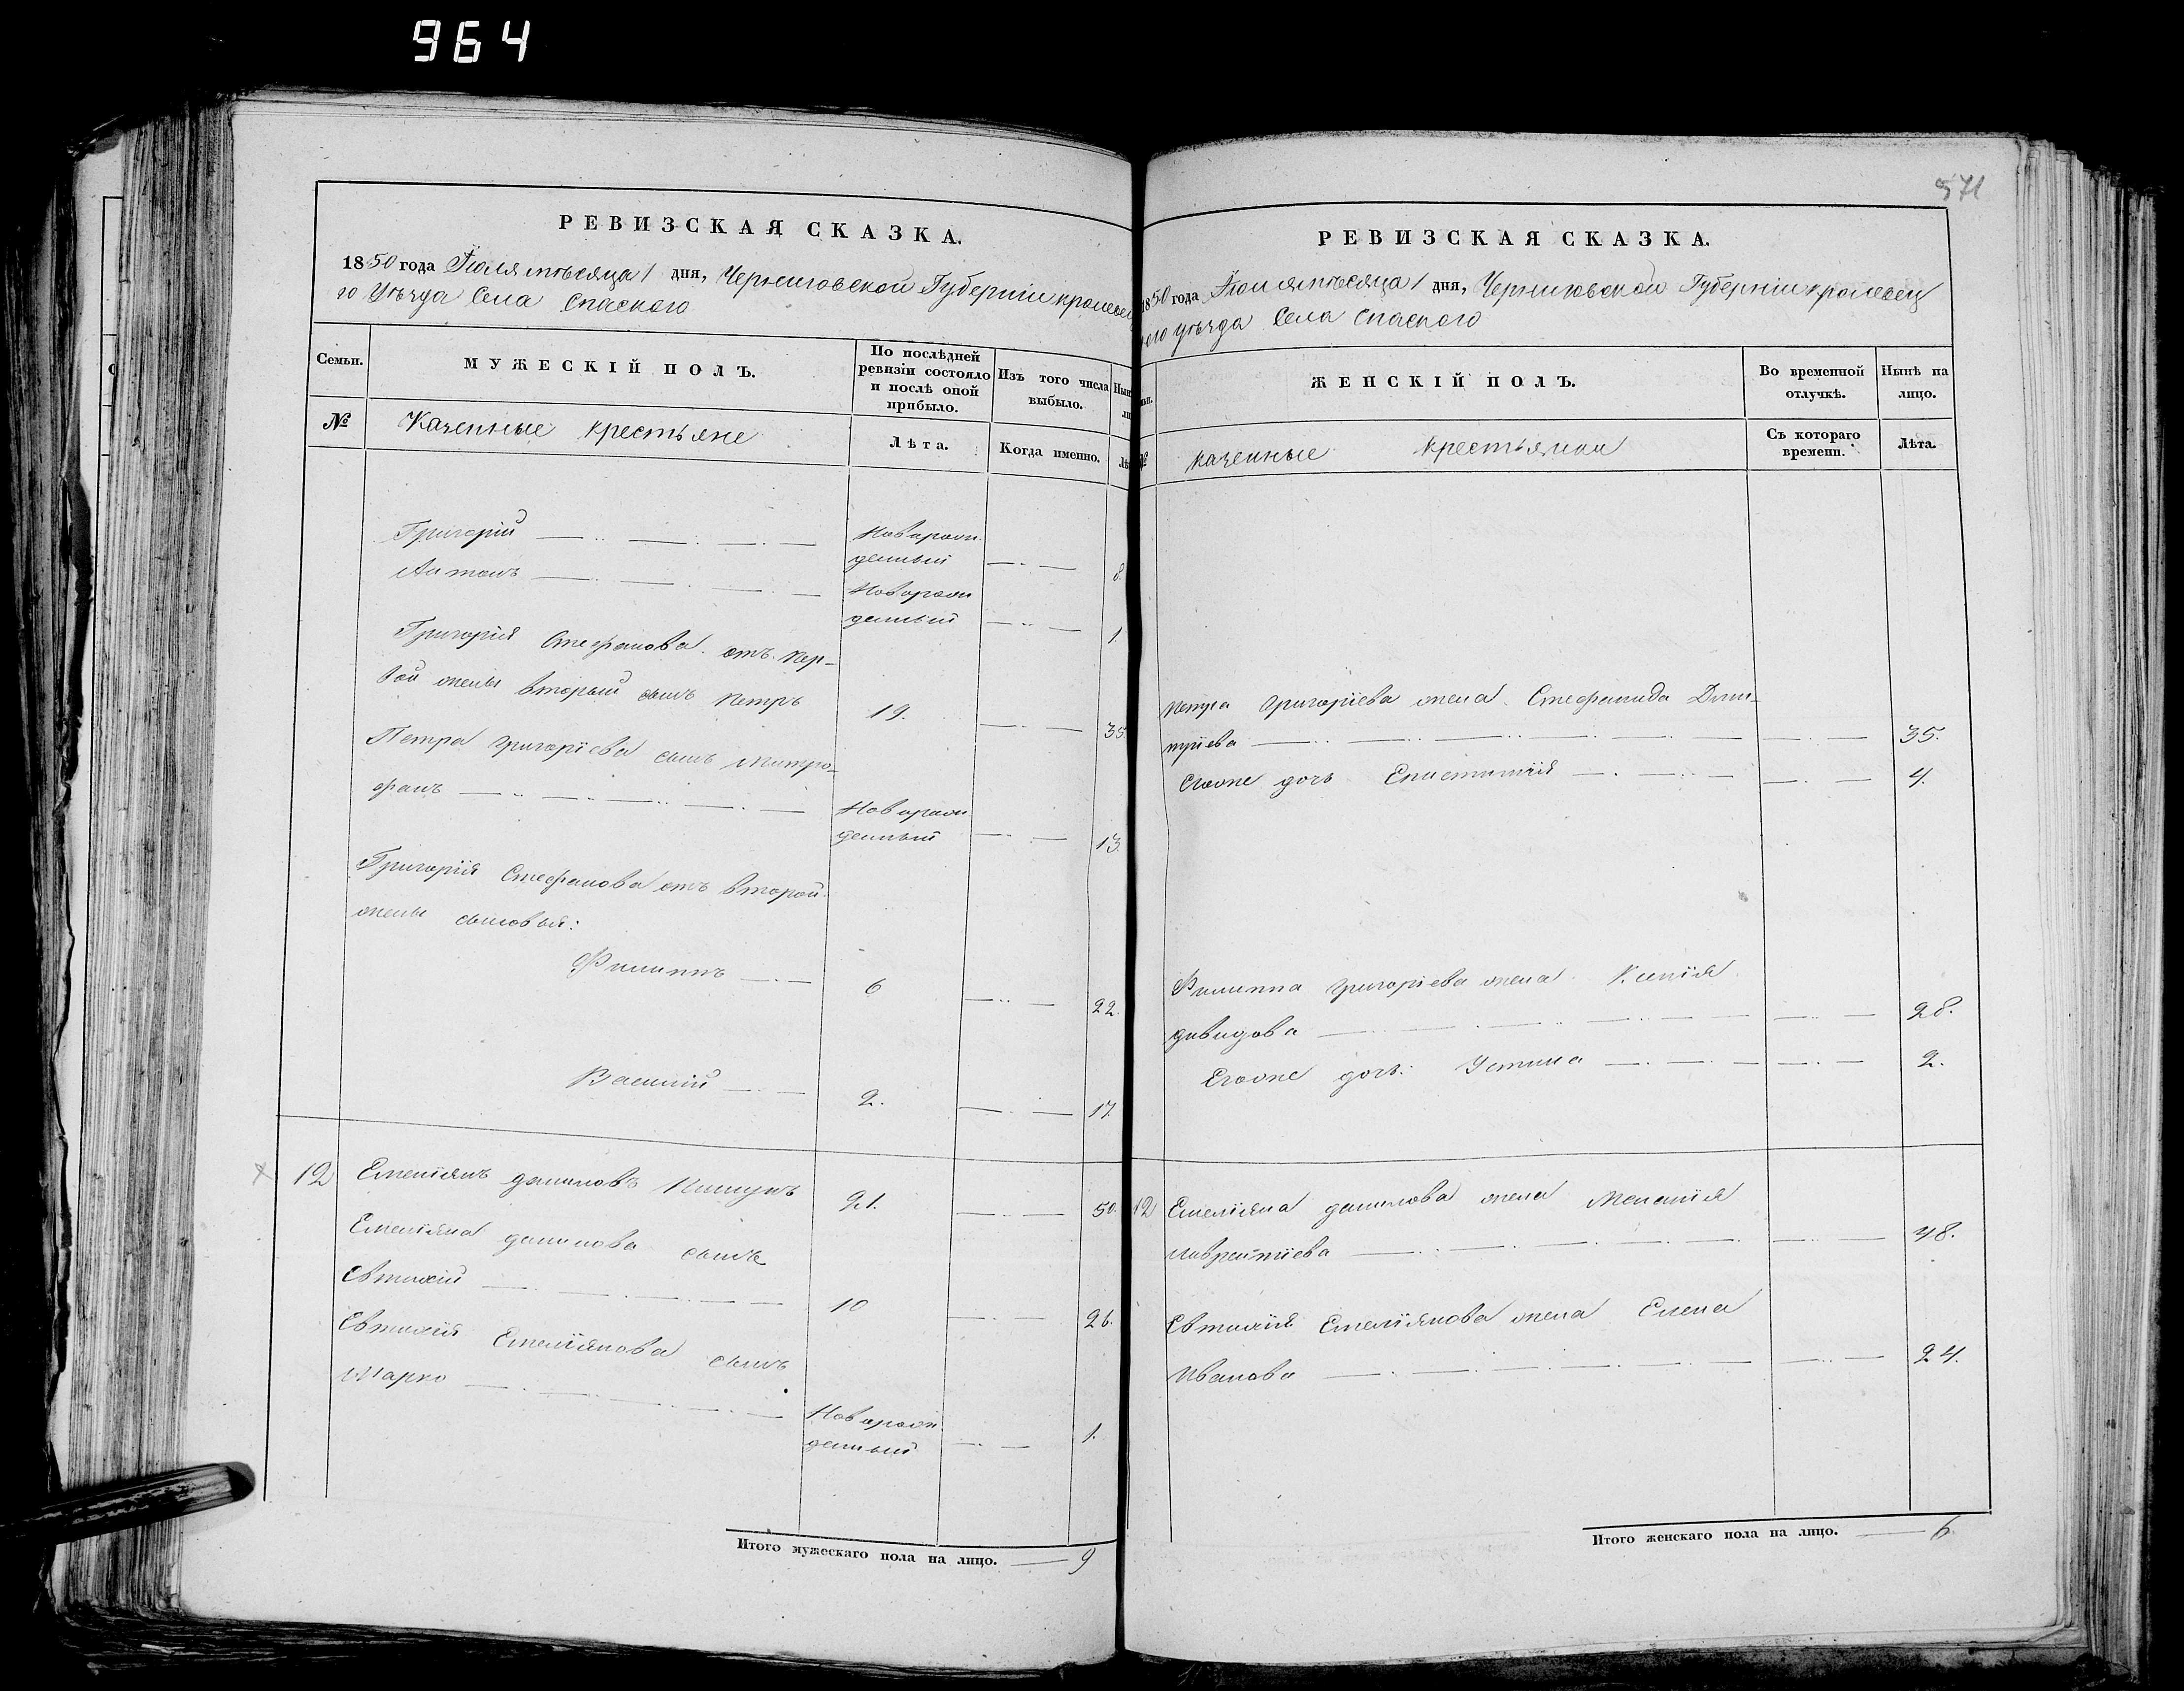 964
РЕВИЗСКАЯ СКАЗКА.
1850 года Іюля мѣсяца 1 дня, Черниговской Губерніи кролевец
го Уѣзда Села Спаского
Семьи.
МУЖЕСКІЙ ПОЛЪ.
По послѣдней
ревизіи состояло
и послѣ оной
прибыло.
Изъ того числа
выбыло.
№
Казенные крестьяне
Лѣта.
Когда именно.
Григорій
Новорож
денный
8.
Антонъ
Новорож
денный
1.
Григорія Стефанова отъ пер-
вой жены вторый сынъ Петръ
19.
35.
Петра Григоріева сынъ Митро-
фанъ
Новорож
денный
13.
Григорія Стефанова отъ второй
жены сыновья:
Филиппъ
6
22.
Василій
2.
17.
12
Емеліянъ Даниловъ
21.
50.
Емеліяна Данилова сынъ
Евтихій
10
26.
Евтихія Емеліянова сынъ
Марко
Новорож
денный
1.
Итого мужескаго пола на лицо. 9
571
РЕВИЗСКАЯ СКАЗКА.
1850 года Іюля мѣсяца 1 дня, Черниговской Губерніи кролевец
кого уѣзда Села Спаского
ЖЕНСКІЙ ПОЛЪ.
Во временной
отлучкѣ.
Нынѣ на
лицо.
№
казенные крестьянки
Съ котораго
времени.
Лѣта.
Петра Григоріева жена Стефанида Дми-
тріева
35.
Егоже дочь Епистимія
4.
Филиппа Григоріева жена Ксенія
Давидова
28.
Егоже дочь: Устина
2.
12
Емеліяна Данилова жена Меланія
Лаврентіева
48.
Евтихія Емеліянова жена Елена
Иванова
24.
Итого женскаго пола на лицо. 6